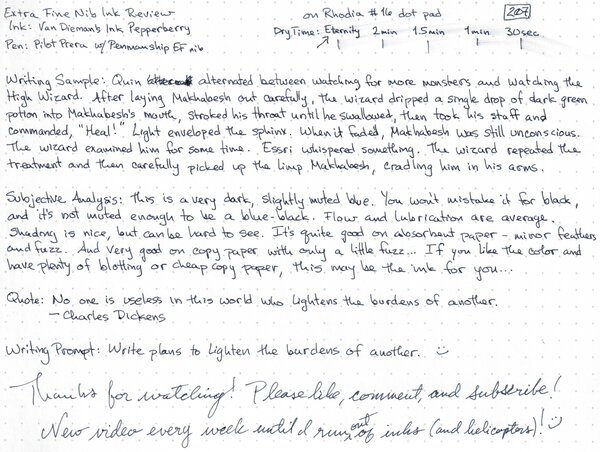 Extra Fine Nib Ink Review
on Rhodia #16 dot pad
207
Ink: Van Dieman's Ink Pepperberry
Dry Time: Eternity 2min 1.5min 1min 30sec
Pen: Pilot Prera w/ Penmanship EF nib
Writing Sample: Quin alternated between watching for more monsters and watching the
High Wizard. After laying Makhabesh out carefully, the wizard dripped a single drop of dark green
potion into Makhabesh's mouth, stroked his throat until he swallowed, then took his staff and
commanded, "Heal!" Light enveloped the sphinx. When it faded, Makhabesh was still unconscious.
The wizard examined him for some time. Essri whispered something. The wizard repeated the
treatment and then carefully picked up the limp Makhabesh, cradling him in his arms.
Subjective Analysis: This is a very dark, slightly muted blue. You won't mistake it for black,
and it's not muted enough to be a blue-black. Flow and lubrication are average.
Shading is nice, but can be hard to see. It's quite good on absorbent paper - minor feathers
and fuzz. And very good on copy paper with only a little fuzz... If you like the color and
have plenty of blotting or cheap copy paper, this may be the ink for you...
Quote: No one is useless in this world who lightens the burdens of another.
- Charles Dickens
Writing Prompt: Write plans to lighten the burdens of another. :)
Thanks for watching! Please like, comment, and subscribe!
New video every week until I run out of inks (and helicopters)! :)